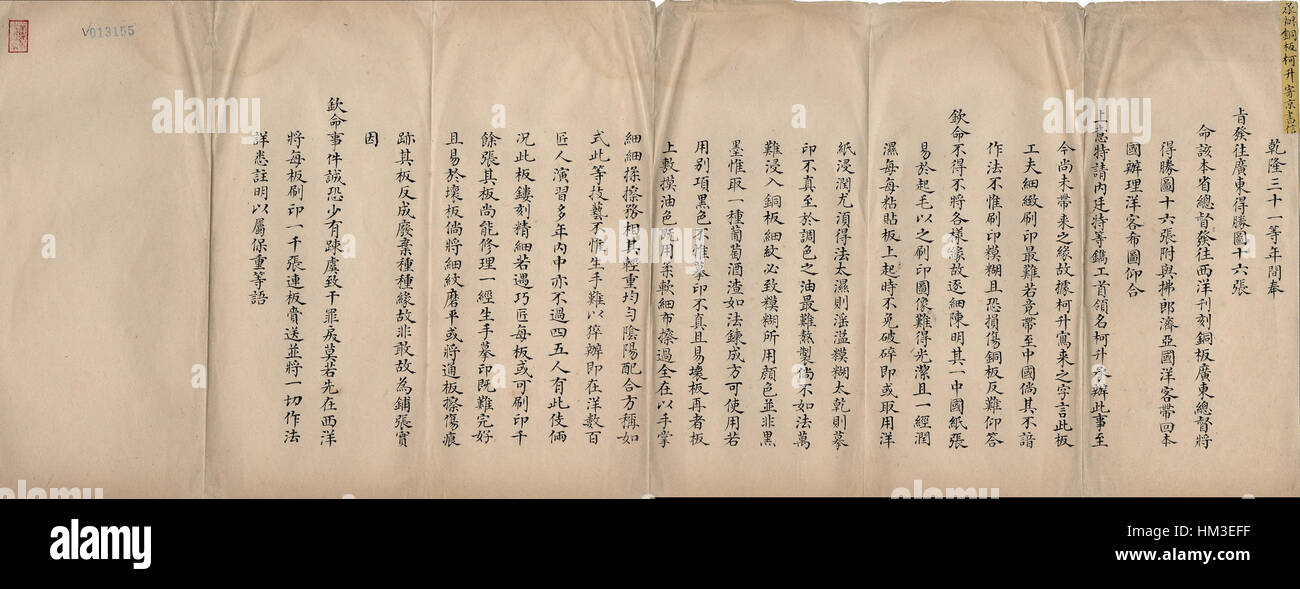 承辦銅板柯升寄京書信
乾隆三十一等年間奉
旨發往廣東得勝圖十六張
命該本省總督發往西洋刊刻銅板廣東總督將
得勝圖十六張附與拂郎濟亞國洋客帶回本
國辦理洋客布圖仰合
上意特請內廷特等鐫工首領名柯升承辦此事至
今尚未帶來之緣故據柯升寫來之字言此板
工夫細緻刷印最難若竟帶至中國倘其不諳
作法不惟刷印模糊且恐損傷銅板反難仰答
欽命不得不將各樣緣故逐細陳明其一中國紙張
易於起毛以之刷印圖像難得光潔且一經潤
濕每每粘貼板上起時不免破碎即或取用洋
紙浸潤尤須得法太濕則淫溢糢糊太乾則摹
印不真至於調色之油最難熬製倘不如法萬
難浸入銅板細紋必致糢糊所用顏色並非黑
墨惟取一種葡萄酒渣如法鍊成方可使用若
用別項黑色不惟摹印不真且易壞板再者板
上敷摸油色既用柔軟細布擦過全在以手掌
細細揉擦務相其輕重均勻陰陽配合方稱如
式此等技藝不惟生手難以猝辦即在洋數百
匠人演習多年內中亦不過四五人有此伎倆
況此板鏤刻精細若遇巧匠每板或可刷印千
餘張其板尚能修理一經生手摹印既難完好
且易於壞板倘將細紋磨平或將通板擦傷痕
跡其板反成廢棄種種緣故非敢故為鋪張實
因
欽命事件誠恐少有踈虞致干罪戾莫若先在西洋
將每板刷印一千張連板賫送並將一切作法
詳悉註明以屬保重等語
V013155
alamy stock photo
HM3EFF
www.alamy.com